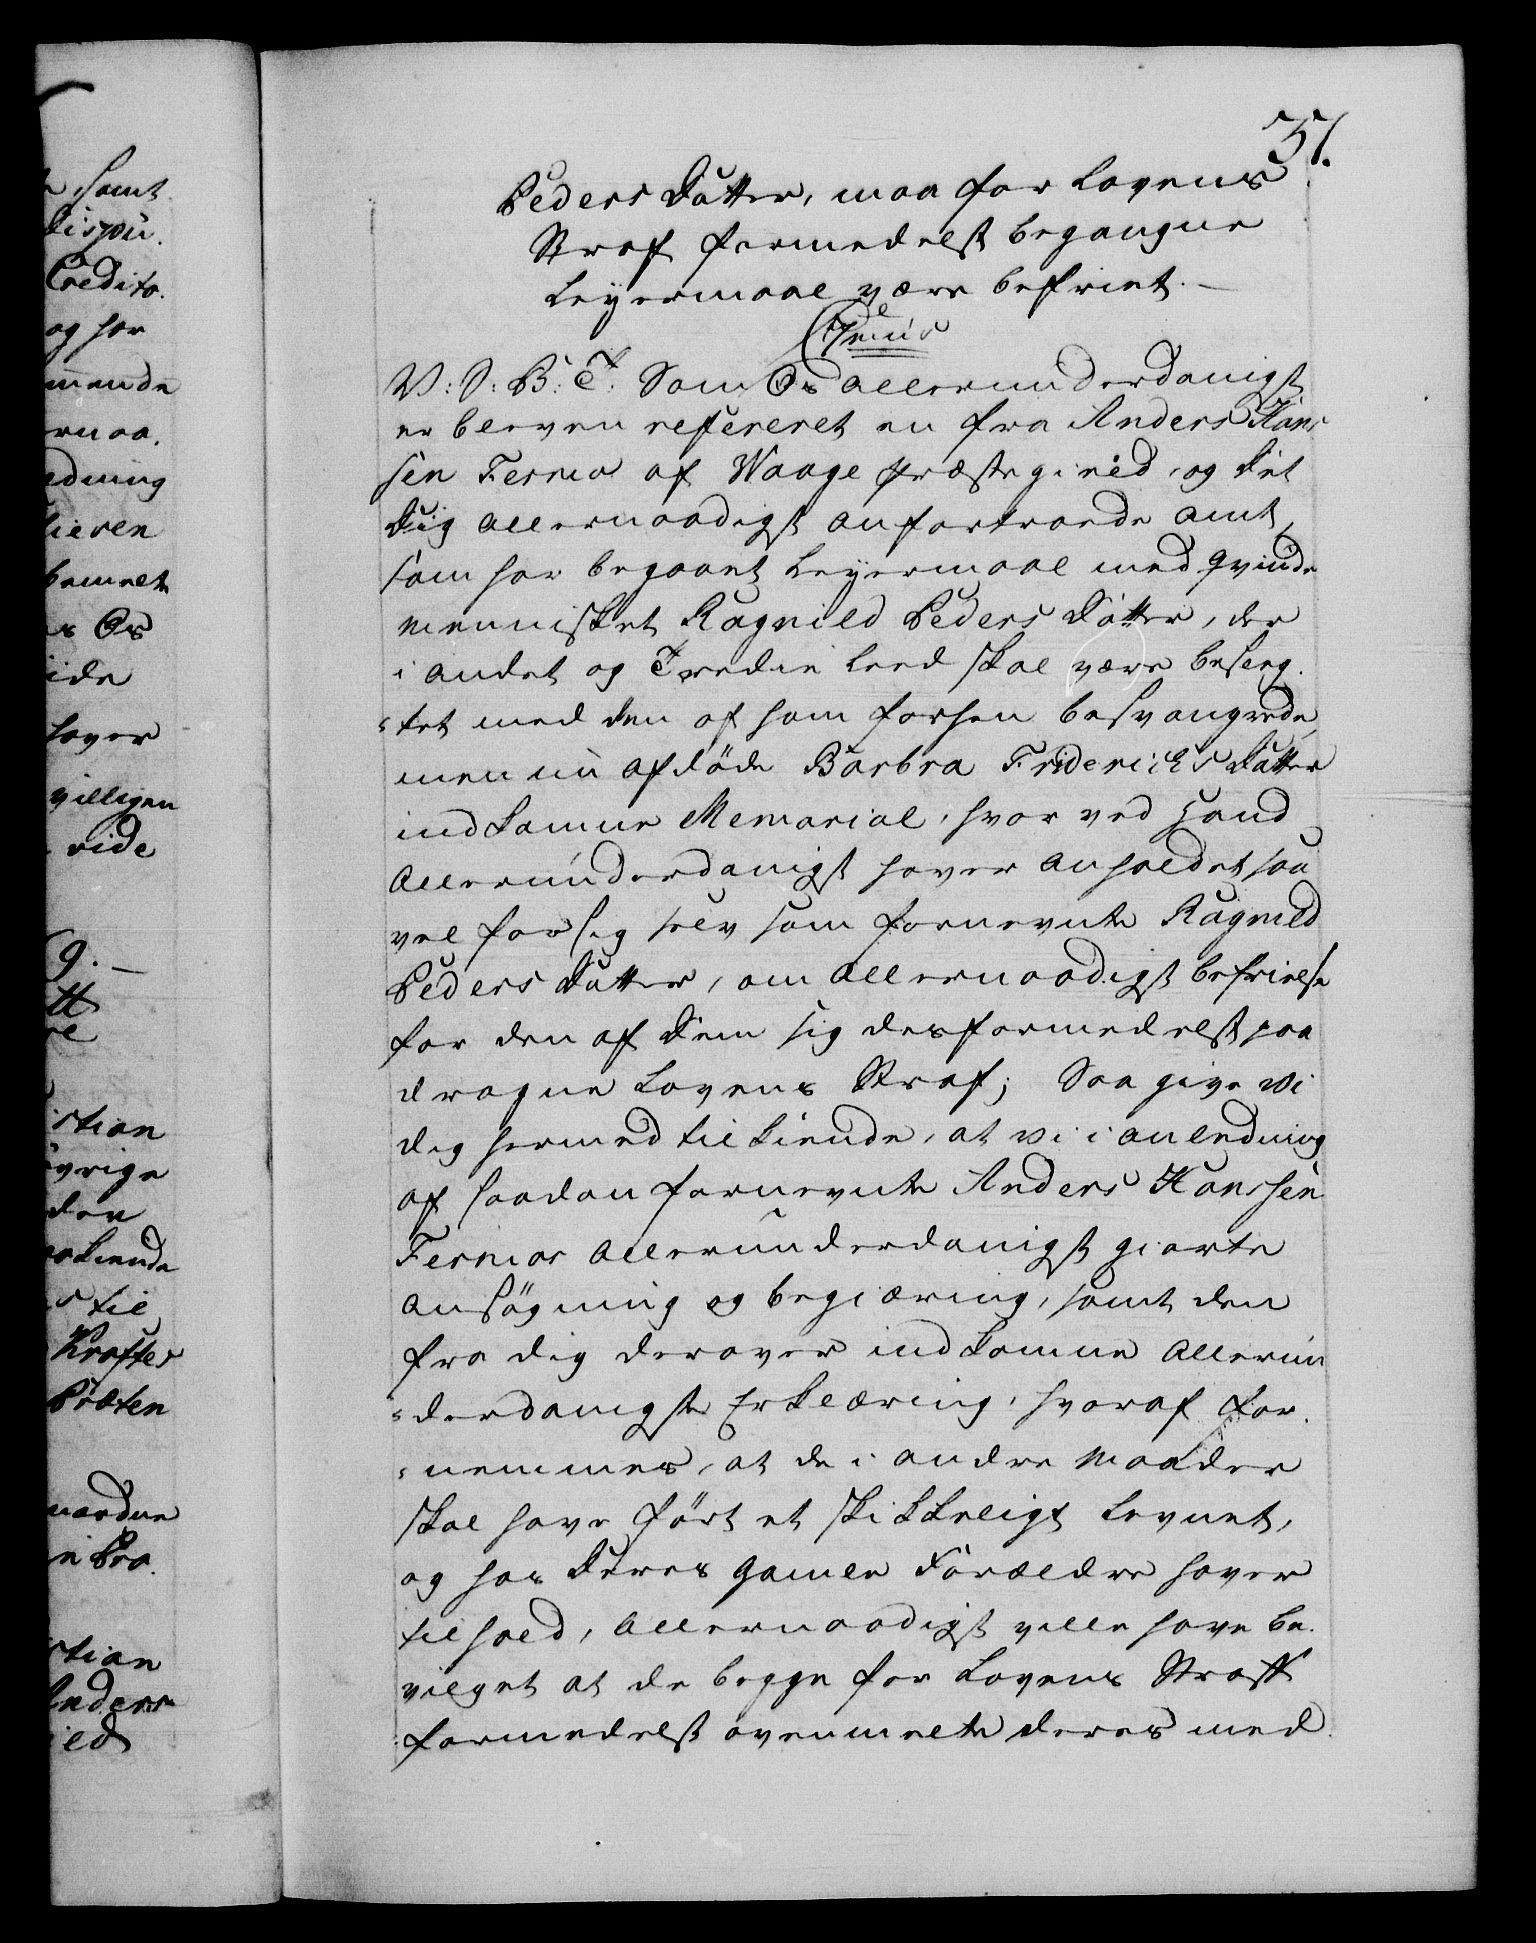 31.
Peders Datter, maa for Lovens
Straf formedelst begangne
Leyermaal være befriet. —
V: S: B: T: Som Os allerunderdanigst
er bleven refereret en fra Anders Hans
sen Fermo af Waage Præstegield, og Dit
Dig allernaadigst anfortroede Amt,
som har begaaet Leyermaal med Qvinde
mennisket Ragnild Peders Datter, der
i andet og Tredie Leed skal være besleg-
-tet med den af ham forhen besvangrede,
men nu afdöde Barbra Friderichs Datter
indkomne Memorial, hvor ved Hand
Allerunderdanigst haver anholdet saa
vel for sig selv som fornevnte Ragnild
Peders Datter, om allernaadigst befrielse
for den af Dem sig desformedelst paa
dragne Lovens Straf; Saa give Vi
dig hermed tilkiende, at Vi i anledning
af saadan fornevnte Anders Hanssen
Fermoes allerunderdanigst giorte
ansögning og begiæring, samt den
fra dig derover indkomne Allerun
-derdanigste Erklæring, hvoraf for-
-nemmes, at de i andre Maader
skal have fört et skikkeligt Levnet,
og hos Deres gamle Forældre haver
tilhold, allernaadigst ville have be-
vilget at de begge for Lovens Straff
formedelst ovenmelte deres med
n Samt
Dispu.
Credito.
og for
mende
ernaa.
edning
lieren
bemelte
s Os
ide
haver
villigen
vide
9. —
tt
re
istian
övrige
den
kiende
s til
Kraftes
Piæten
n Pro.
stian
Anders
ild